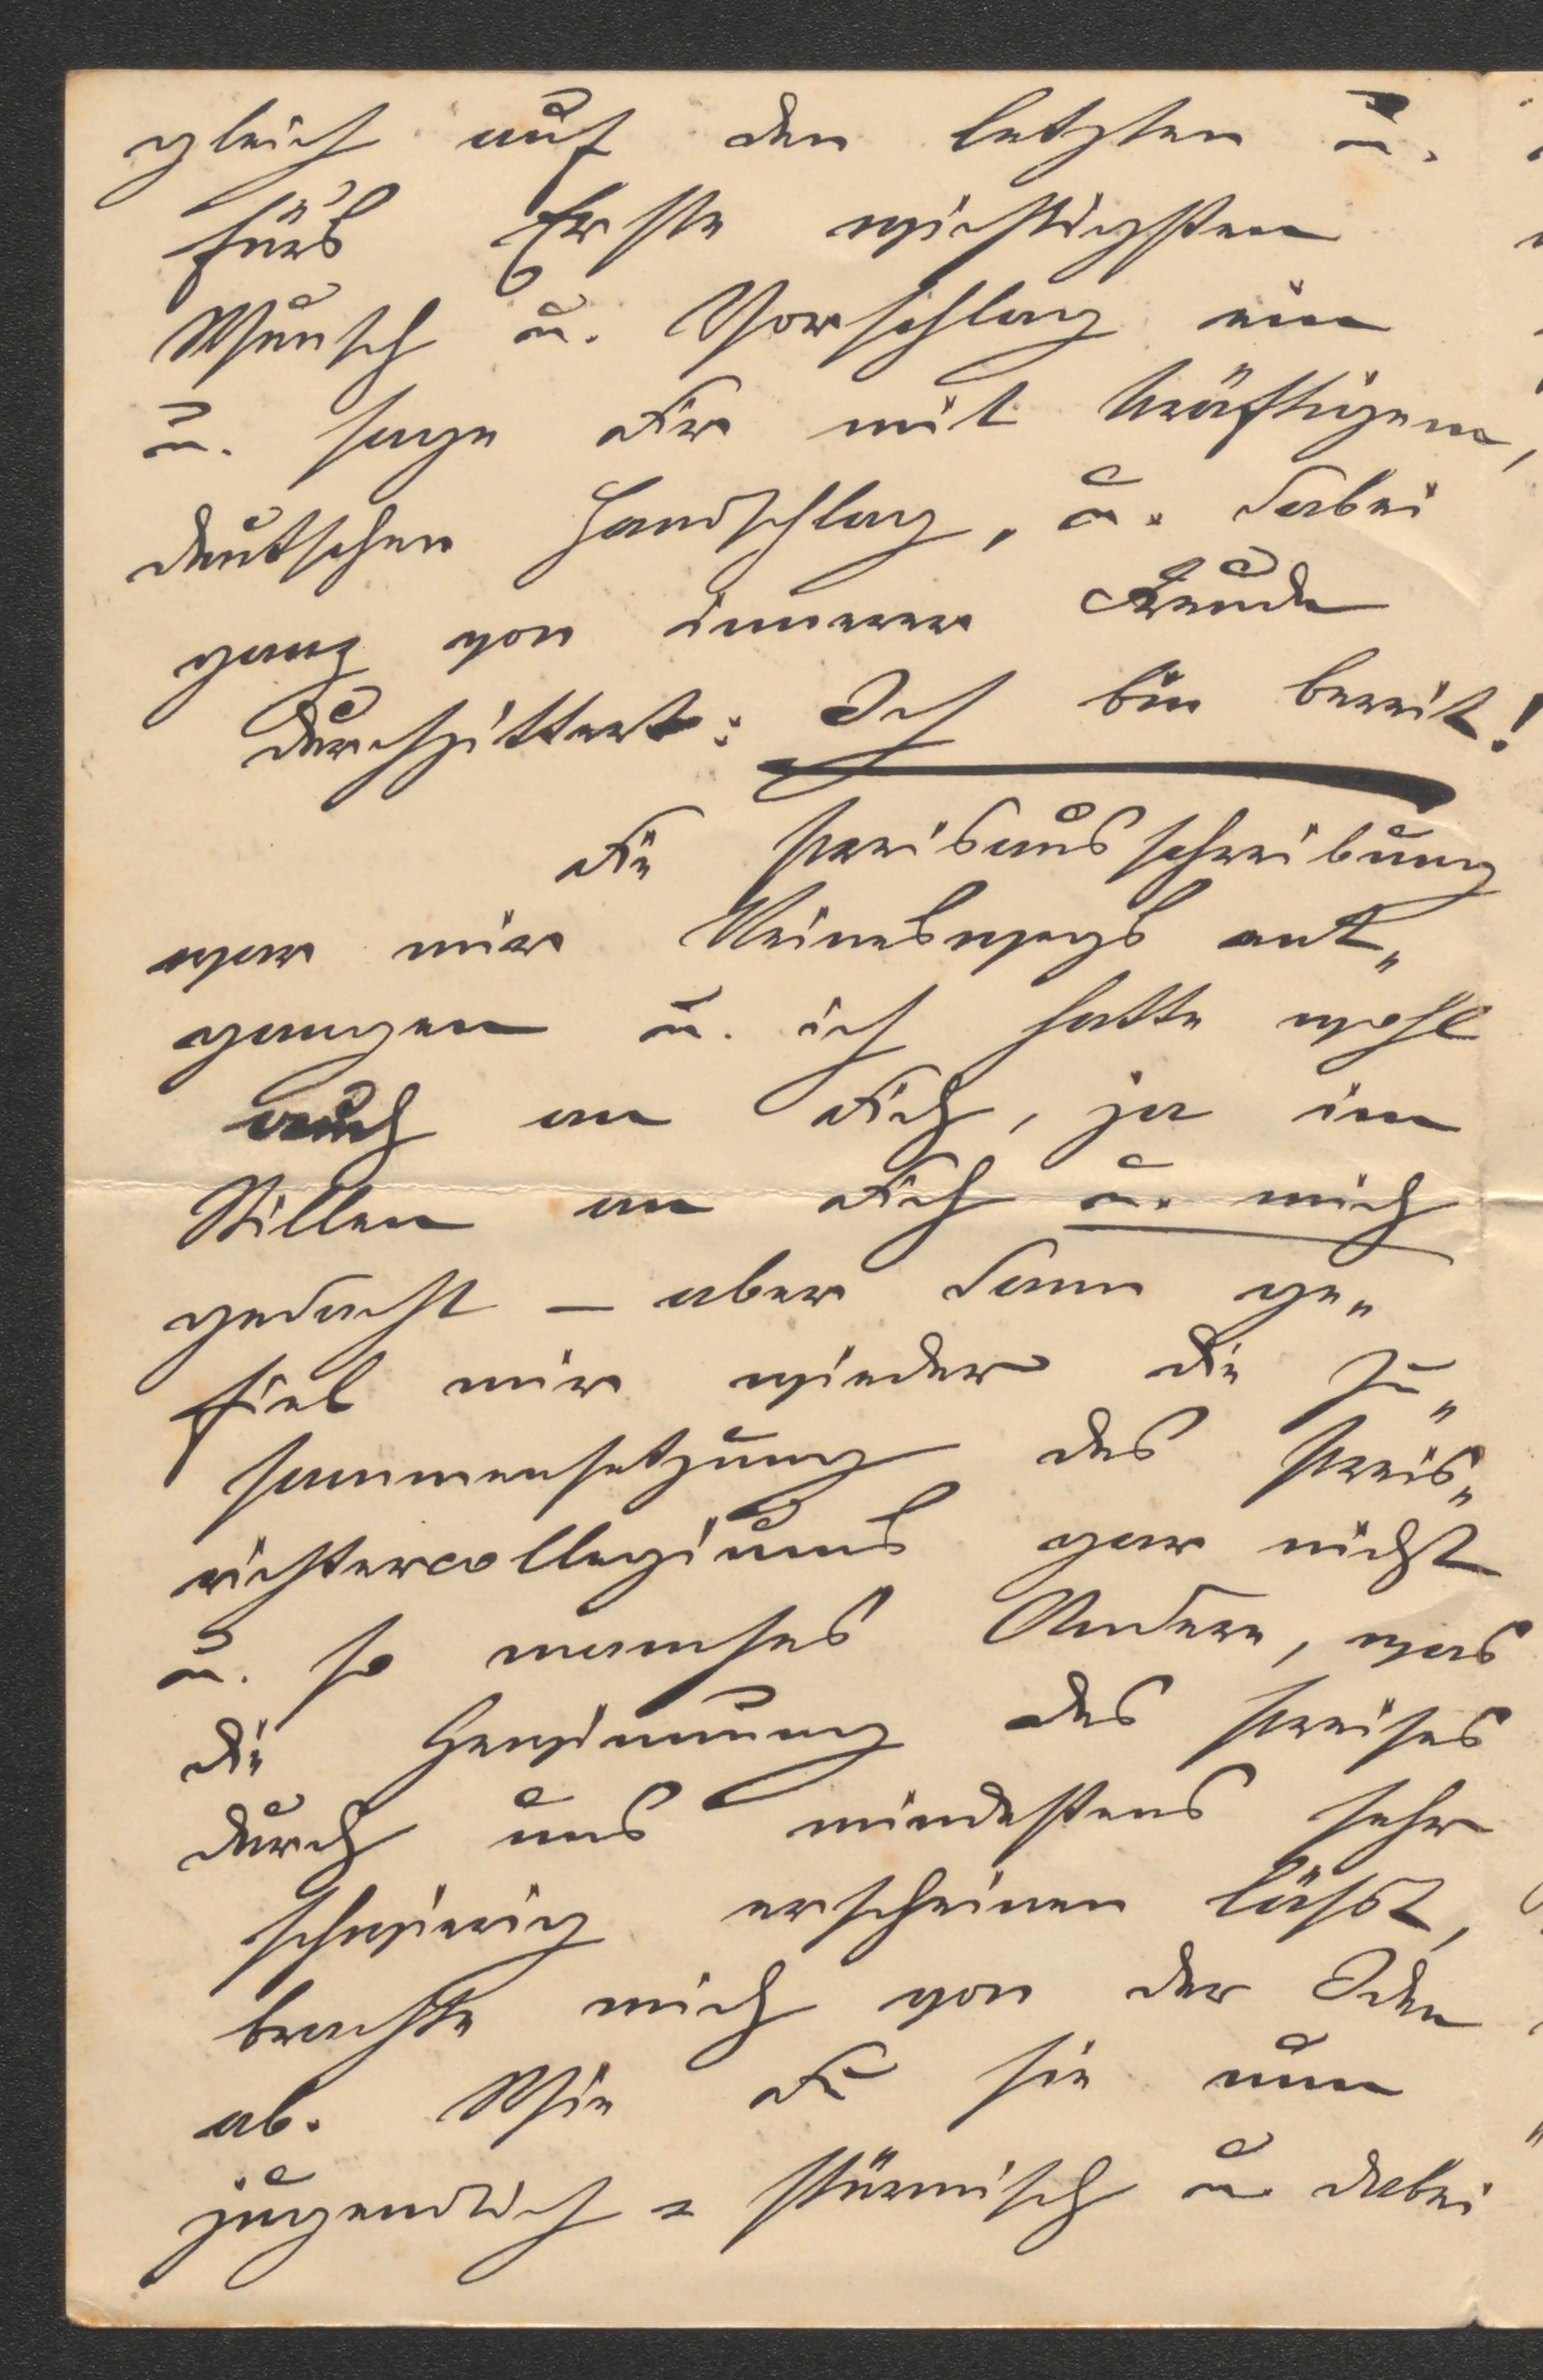 gleich auf den letzten u.
fürs Erste wichtigsten
Wunsch u. Vorschlag ein
u. sage Dir mit kräftigem,
deutschen Handschlag, u. dabei
ganz von innerer Freude
durchzittert: Ich bin bereit!
Die Preisausschreibung
war mir keineswegs ent„
gangen u. ich hatte wohl
auch an Dich, ja im
Stillen an Dich u. mich
gedacht – aber dann ge„
fiel mir wieder die Zu„
sammensetzung des Preis„
richtercollegiums gar nicht
u. so manches Andere, was
die Gewinnung des Preises
durch uns mindestens sehr
schwierig erscheinen lässt,
brachte mich von der Idee
ab. Wie Du sie nun
jugendlich = stürmisch u. dabei